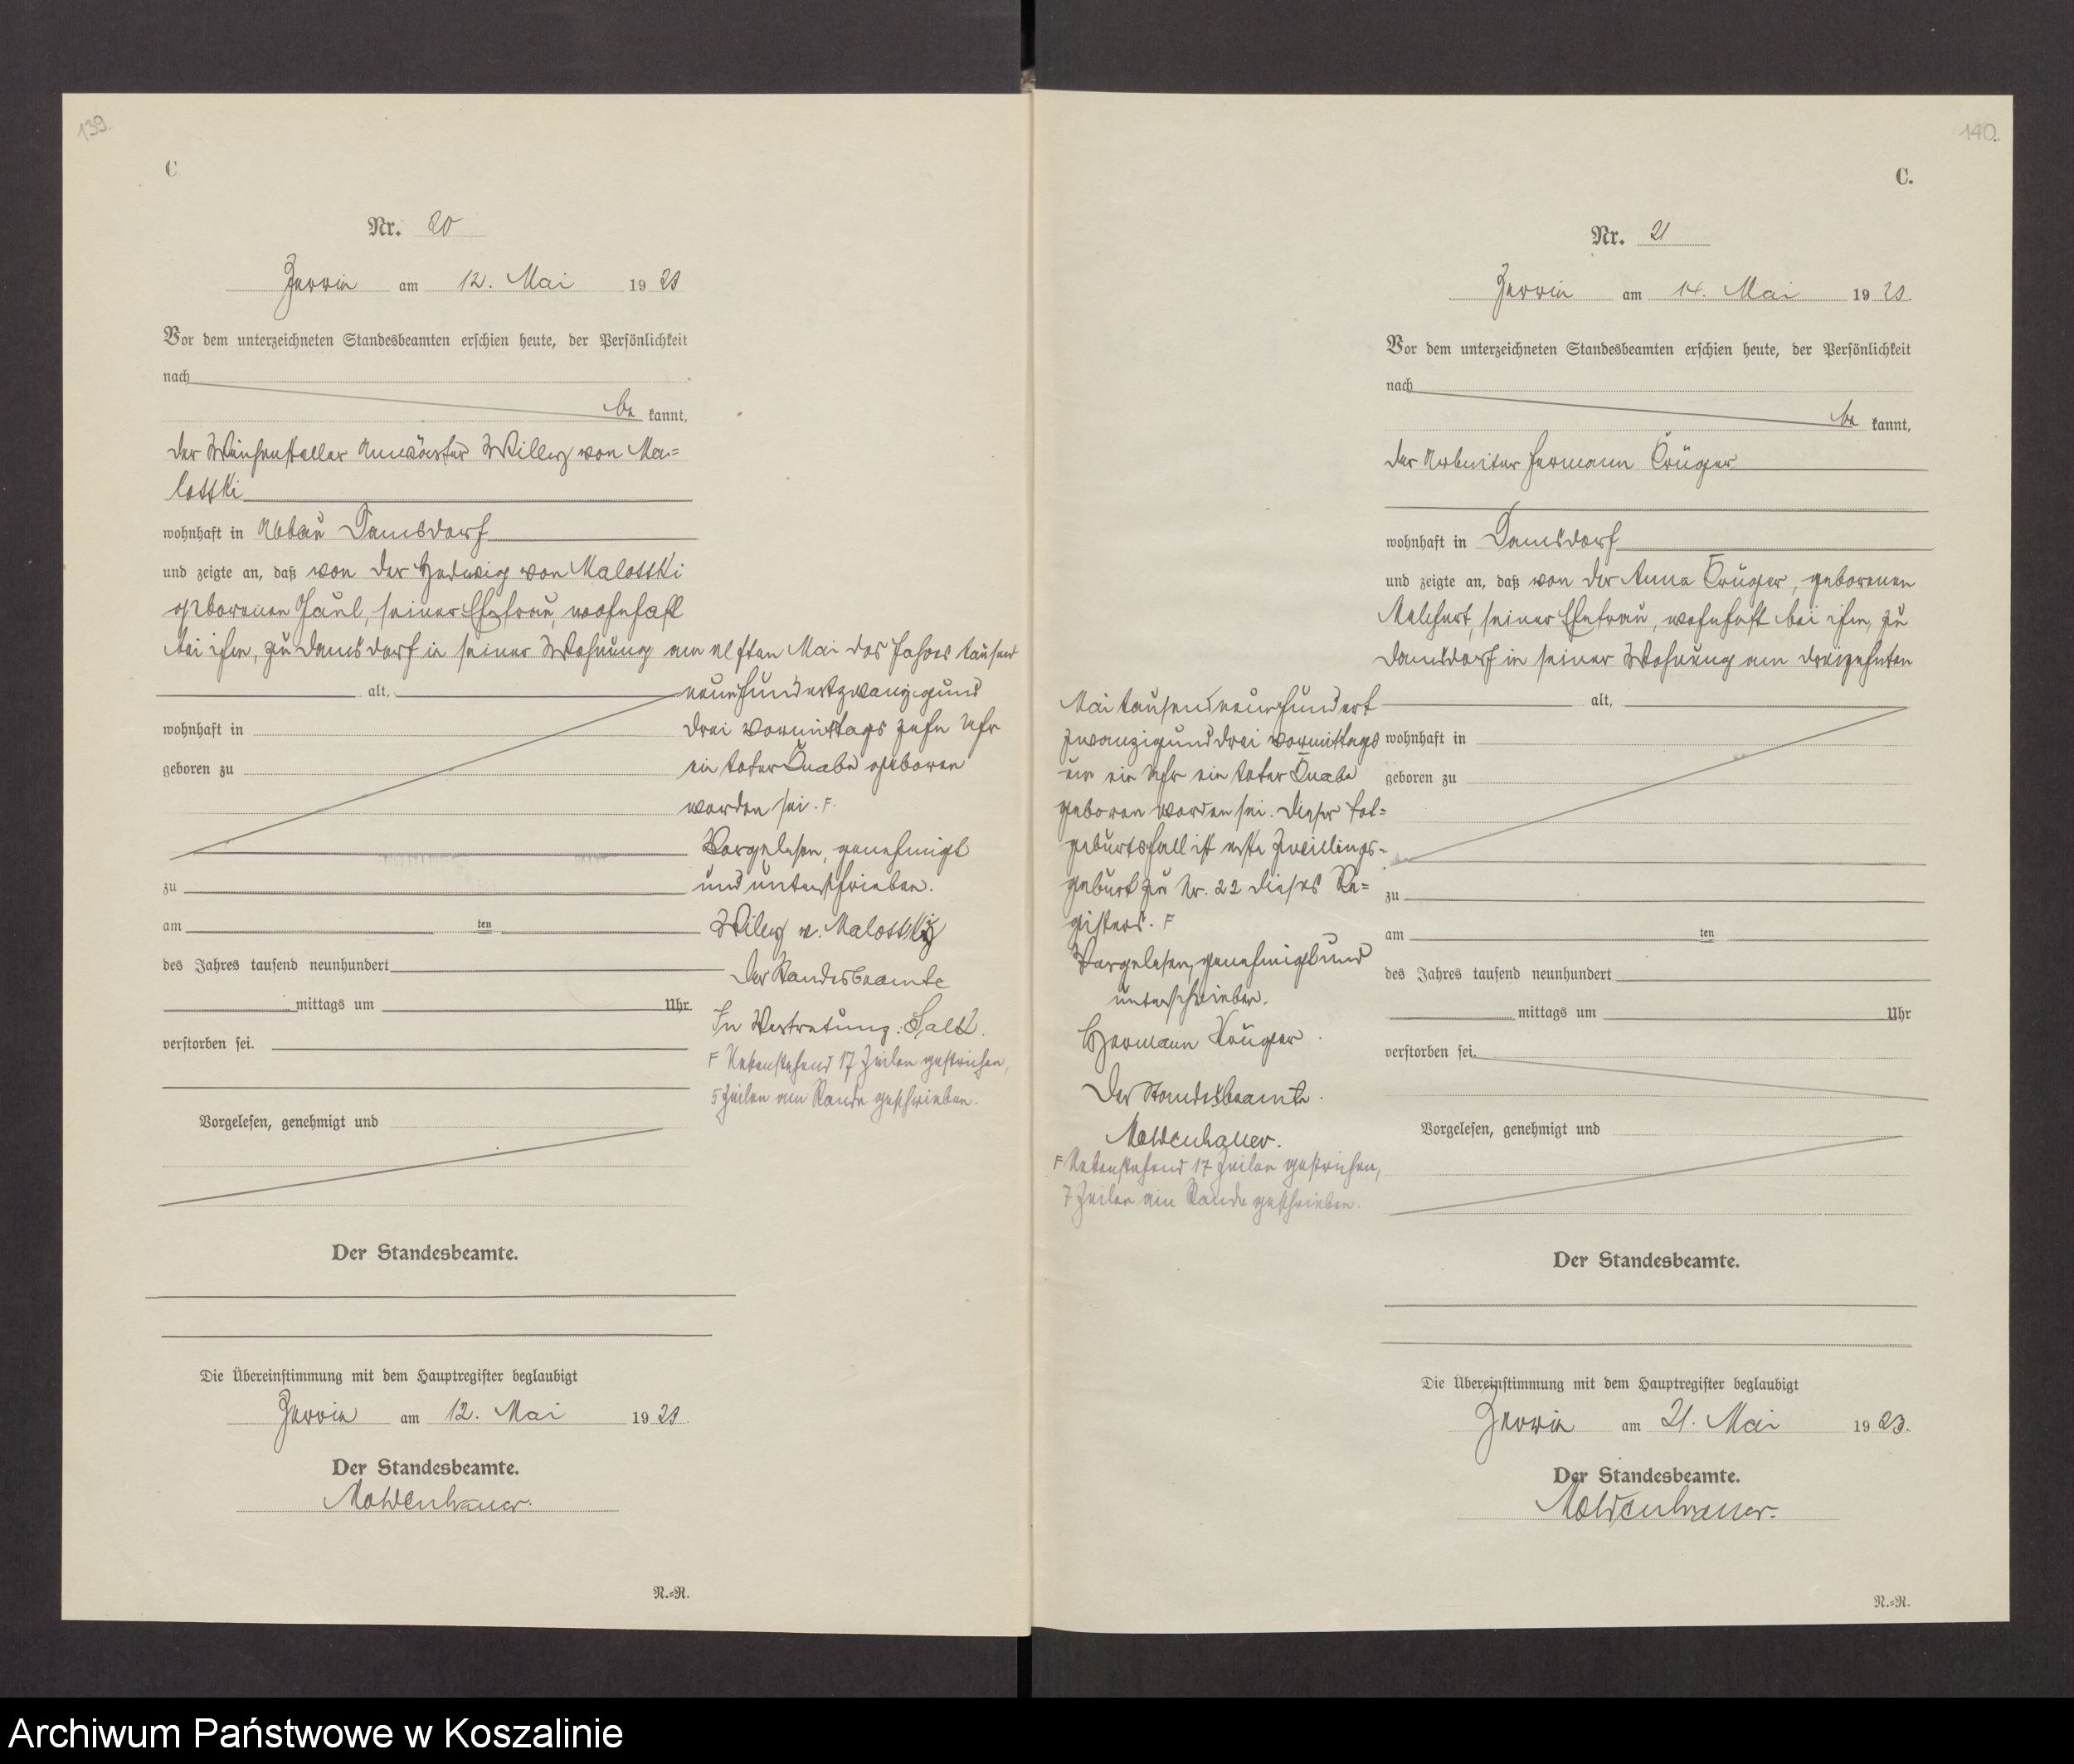 139.
C
Nr. 20
Zerrin am 12. Mai 1923
Vor dem unterzeichneten Standesbeamten erschien heute, der Persönlichkeit
nach
be kannt,
der Weichensteller Anwärter Willy von Ma=
lottki
wohnhaft in Abbau Damsdorf
und zeigte an, daß von der Hedwig von Malottki
geborenen Paul, seiner Ehefrau, wohnhaft
bei ihm, zu Damsdorf in seiner Wohnung am elften Mai des Jahres tausend
alt, neunhundertzwanzigund
wohnhaft in drei vormittags zehn Uhr
geboren zu ein toter Knabe geboren
worden sei. F.
Vorgelesen, genehmigt
zu und unterschrieben.
am ten Willy v. Malottki
des Jahres tausend neunhundert Der Standesbeamte
mittags um Uhr In Vertretung:
verstorben sei. F Nebenstehend 17 Zeilen gestrichen,
5 Zeilen am Rande geschrieben.
Vorgelesen, genehmigt und
Der Standesbeamte.
Die Übereinstimmung mit dem Hauptregister beglaubigt
Zerrin am 12. Mai 1923.
Der Standesbeamte.
Moldenhauer.
N.=R.
140.
C.
Nr. 21
Zerrin am 14. Mai 1923.
Vor dem unterzeichneten Standesbeamten erschien heute, der Persönlichkeit
nach
be kannt,
der Arbeiter Hermann Krüger
wohnhaft in Damsdorf
und zeigte an, daß von der Anna Krüger, geborenen
seiner Ehefrau, wohnhaft bei ihm, zu
Damsdorf in seiner Wohnung am dreizehnten
Mai tausendneunhundert alt,
zwanzigunddrei vormittags wohnhaft in
um ein Uhr ein toter Knabe geboren zu
geboren worden sei. Dieser Tot=
geburtsfall ist erste Zwillings-
geburt zu Nr. 22 dieses Re= zu
gisters. F am ten
Vorgelesen, genehmigt und des Jahres tausend neunhundert
unterschrieben. mittags um Uhr
Hermann Krüger. verstorben sei.
Der Standesbeamte.
Moldenhauer. Vorgelesen, genehmigt und
F Nebenstehend 17 Zeilen gestrichen,
7 Zeilen am Rande geschrieben.
Der Standesbeamte.
Die Übereinstimmung mit dem Hauptregister beglaubigt
Zerrin am 21. Mai 1923.
Der Standesbeamte.
Moldenhauer.
N.=R.
Archiwum Państwowe w Koszalinie